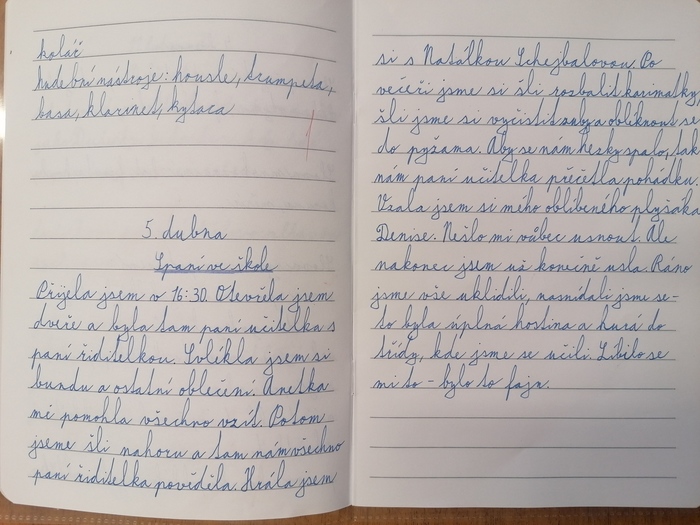 koláč
hudební nástroje: housle, trumpeta,
basa, klarinet, kytara
1
5. dubna
Spaní ve škole
Přijela jsem v 16:30. Otevřela jsem
dveře a byla tam paní učitelka s
paní ředitelkou. Svlíkla jsem si
bundu a ostatní oblečení. Anetka
mi pomohla všechno vzít. Potom
jsme šli nahoru a tam nám všechno
paní ředitelka pověděla. Hrála jsem
si s Natálkou Schejbalovou. Po
večeři jsme si šli rozbalit karimatky
šli jsme si vyčistit zuby a obliknout se
do pyžama. Aby se nám hesky spalo, tak
nám paní učitelka přečetla pohádku.
Vzala jsem si mého oblíbeného plyšáka
Denise. Nešlo mi vůbec usnout. Ale
nakonec jsem už konečně usla. Ráno
jsme vše uklidili, nasnídali jsme se-
to byla úplná hostina a hurá do
třídy, kde jsme se učili. Líbilo se
mi to - bylo to fajn.